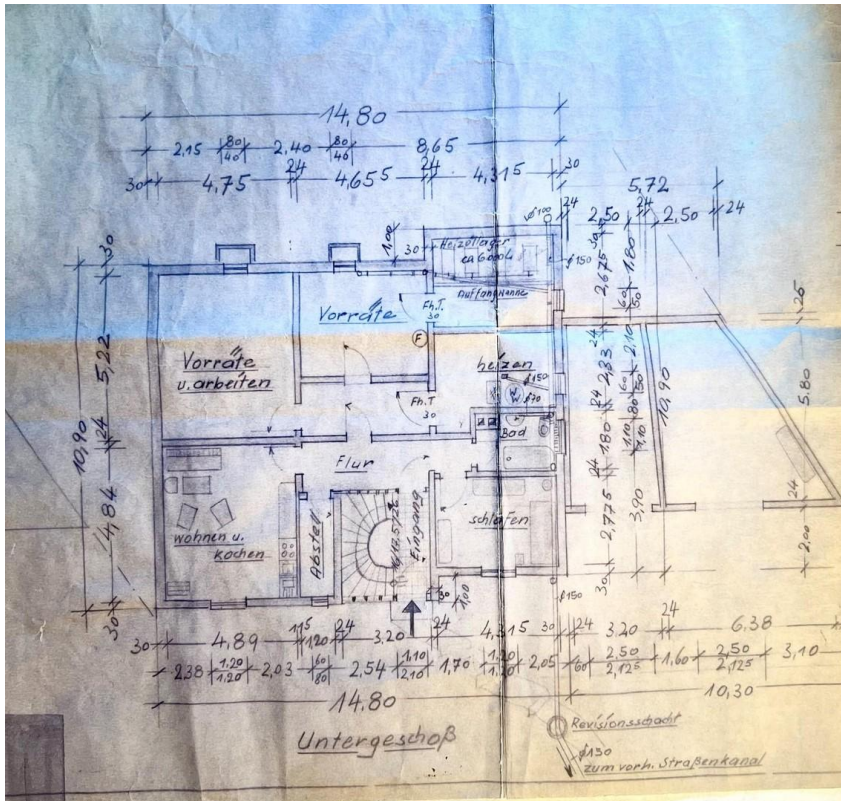 14,80
2,15 80/40 2,40 80/40 8,65
30 4,75 24 4,655 24 4,315 30
5,72
24 2,50 24 2,50 24
ø100
1,00
30
Heizöllager
ca 6000 L
ø150
Auffangwanne
Fh.T.
30
Vorräte
F
Vorräte
u. arbeiten
heizen
ø150
ø70
W
Fh.T
30
Bad
Flur
wohnen u.
kochen
Abstell
16/17,5/28
Eingang
schlafen
30
1,00
ø150
30
5,22
24
4,84
30
10,90
30 2,675 24 2,33 24 1,80 24 2,775 30
1,80 60/50 2,10 60/50 1,10 80/1,10 3,90
10,90
25
5,80
24
2,00
30 4,89 115 1,20 24 3,20 24 4,315 30 24 3,20 24 6,38
2,38 1,20/1,20 2,03 60/80 2,54 1,10/2,10 1,70 1,20/1,20 2,05 60 2,50/2,125 1,60 2,50/2,125 3,10
14,80
10,30
Untergeschoß
Revisionsschacht
ø150
zum vorh. Straßenkanal